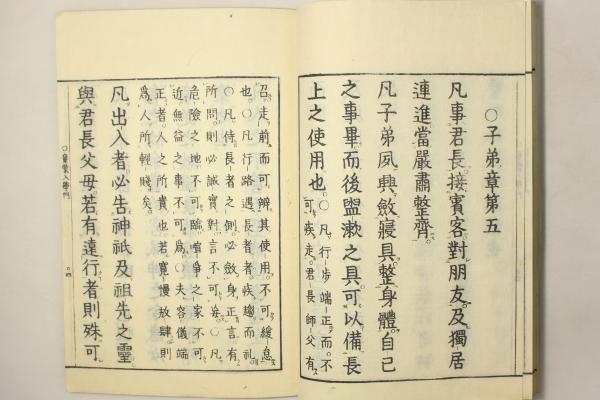 ○子弟章第五
凡事君長接賓客對朋友及獨居
連進當嚴肅整齊
凡子弟夙興斂寢具整身體自己
之事畢而後盥漱之具可以備長
上之使用也○凡行步端正而不
可疾走君長師父有
召走前而可辨其使用不可緩怠
也○凡行路遇長者者疾趨而礼
○凡侍長者之側必斂身正言有
所問則必誠實對言不可妄○凡
危險之地不可臨喧爭之家不可
近無益之事不可爲○夫容儀端
正者人之所貴也若寬慢放肆則
爲人所輕賤矣
凡出入者必告神祇及祖先之靈
與君長父母若有遠行者則殊可